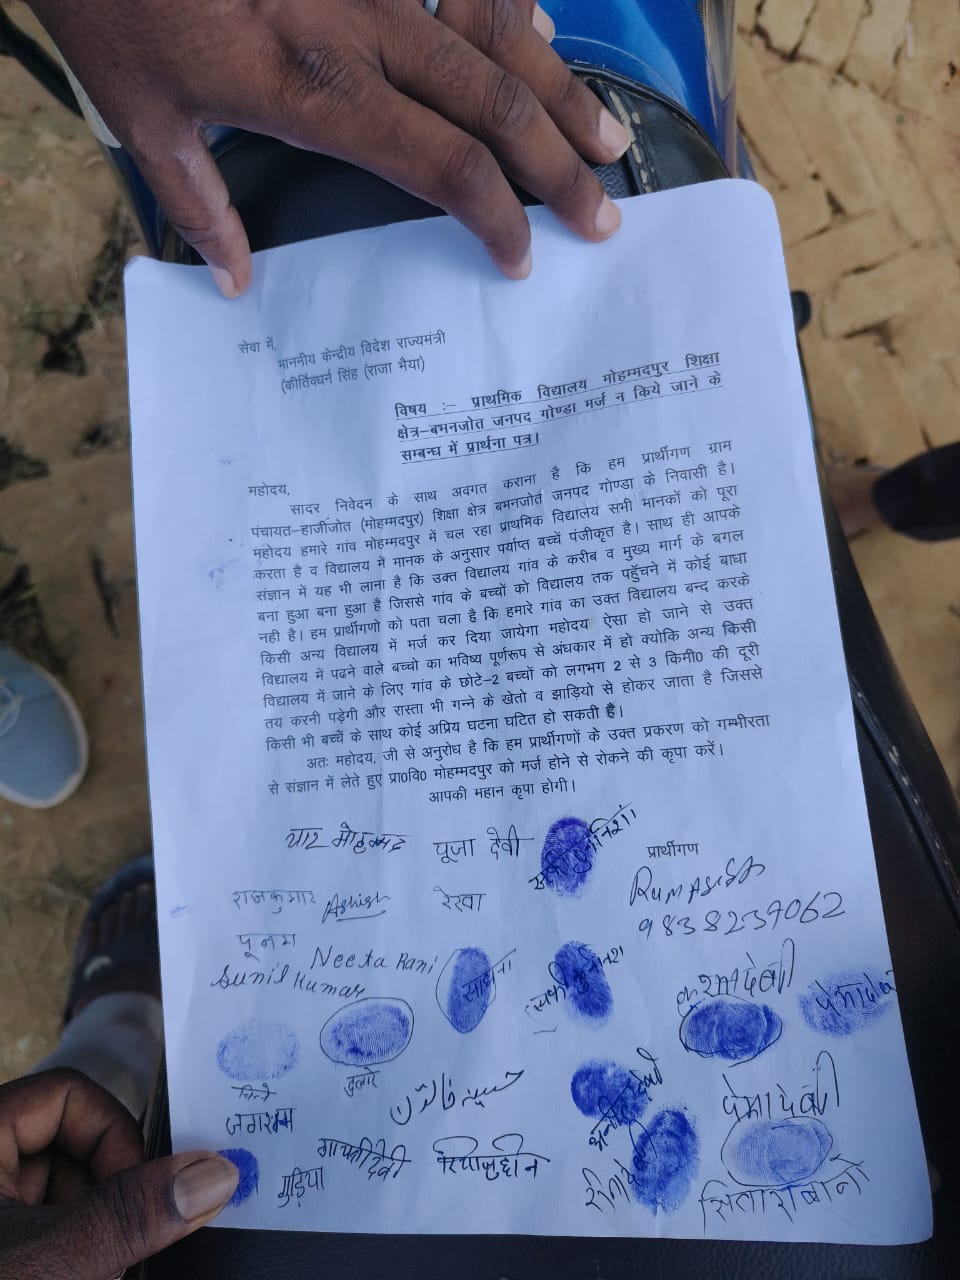 सेवा में,
माननीय केन्द्रीय विदेश राज्यमंत्री
(कीर्तिवर्धन सिंह (राजा भैया)
विषय :– प्राथमिक विद्यालय मोहम्मदपुर शिक्षा
क्षेत्र–बभनजोत जनपद गोण्डा मर्ज न किये जाने के
सम्बन्ध में प्रार्थना पत्र।
महोदय,
सादर निवेदन के साथ अवगत कराना है कि हम प्रार्थीगण ग्राम
पंचायत–हाजीजोत (मोहम्मदपुर) शिक्षा क्षेत्र बभनजोत जनपद गोण्डा के निवासी है।
महोदय हमारे गांव मोहम्मदपुर में चल रहा प्राथमिक विद्यालय सभी मानकों को पूरा
करता है व विद्यालय में मानक के अनुसार पर्याप्त बच्चें पंजीकृत है। साथ ही आपके
संज्ञान में यह भी लाना है कि उक्त विद्यालय गांव के करीब व मुख्य मार्ग के बगल
बना हुआ बना हुआ है जिससे गांव के बच्चों को विद्यालय तक पहुँचने में कोई बाधा
नही है। हम प्रार्थीगणो को पता चला है कि हमारे गांव का उक्त विद्यालय बन्द करके
किसी अन्य विद्यालय में मर्ज कर दिया जायेगा महोदय ऐसा हो जाने से उक्त
विद्यालय में पढने वाले बच्चो का भविष्य पूर्णरूप से अंधकार में हो क्योकि अन्य किसी
विद्यालय में जाने के लिए गांव के छोटे–2 बच्चों को लगभग 2 से 3 किमी0 की दूरी
तय करनी पड़ेगी और रास्ता भी गन्ने के खेतो व झाड़ियो से होकर जाता है जिससे
किसी भी बच्चें के साथ कोई अप्रिय घटना घटित हो सकती है।
अतः महोदय, जी से अनुरोध है कि हम प्रार्थीगणों के उक्त प्रकरण को गम्भीरता
से संज्ञान में लेते हुए प्रा0वि0 मोहम्मदपुर को मर्ज होने से रोकने की कृपा करें।
आपकी महान कृपा होगी।
यार मोहम्मद पूजा देवी
प्रार्थीगण
राजकुमार Ashish रेखा
9838237062
पूनम Neeta Rani
Sunil Kumar
दुलारे
जगराम
प्रेमा देवी
गायत्री देवी रियाजुद्दीन
गुड़िया
सितारा बानो